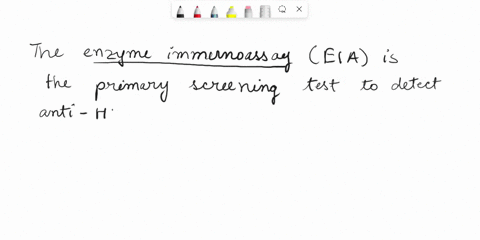 The enzyme immunoassay (EIA) is
the primary screening test to detect
anti-H